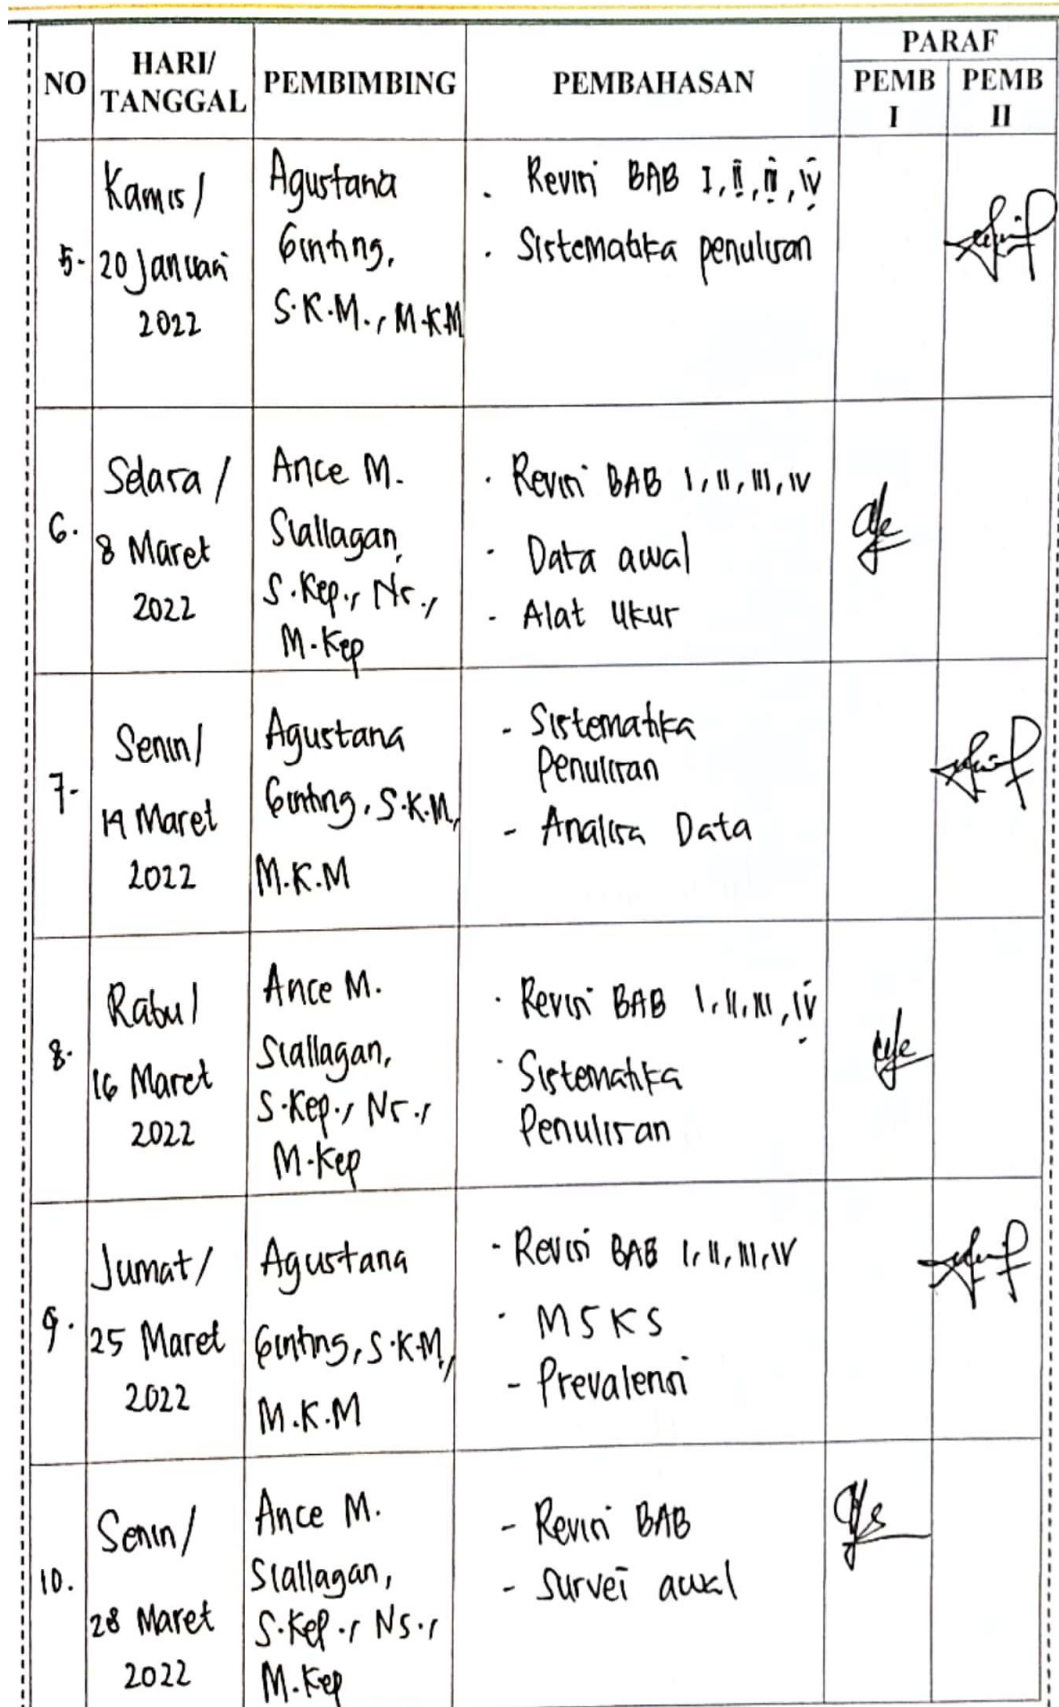 NO HARI/ TANGGAL PEMBIMBING PEMBAHASAN PARAF
PEMB I PEMB II
5. Kamis / 20 Januari 2022
Agustana
Ginting,
S.K.M., M.K.M
. Revisi BAB I, II, III, IV
. Sistematika penulisan
6. Selasa / 8 Maret 2022
Ance M.
Siallagan,
S.Kep., Ns.,
M.Kep
. Revisi BAB I, II, III, IV
- Data awal
- Alat Ukur
7. Senin / 14 Maret 2022
Agustana
Ginting, S.K.M,
M.K.M
- Sistematika
Penulisan
- Analisa Data
8. Rabu / 16 Maret 2022
Ance M.
Siallagan,
S.Kep., Ns.,
M.Kep
. Revisi BAB I, II, III, IV
. Sistematika
Penulisan
9. Jumat / 25 Maret 2022
Agustana
Ginting, S.K.M,
M.K.M
- Revisi BAB I, II, III, IV
. MSKS
- Prevalensi
10. Senin / 28 Maret 2022
Ance M.
Siallagan,
S.Kep., Ns.,
M.Kep
- Revisi BAB
- Survei awal